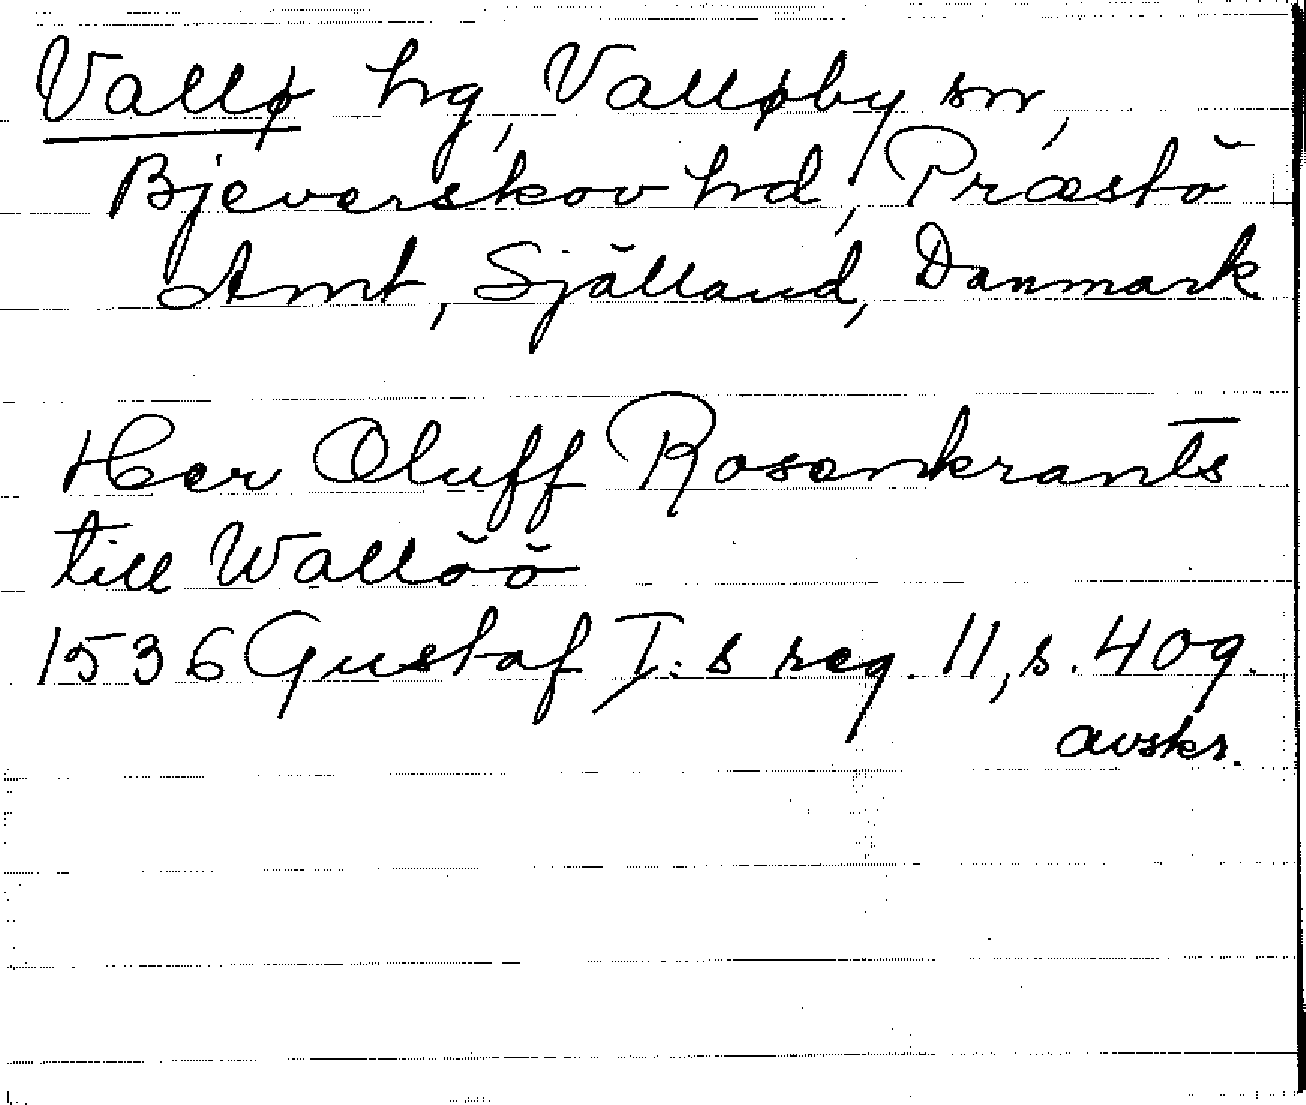 Vallø hg, Valløby sn,
Bjeverskov hd, Præstö
Amt, Själland, Danmark
Her Oluff Rosenkrants
till Wallöö
1536 Gustaf I:s reg. 11, s. 409.
avskr.